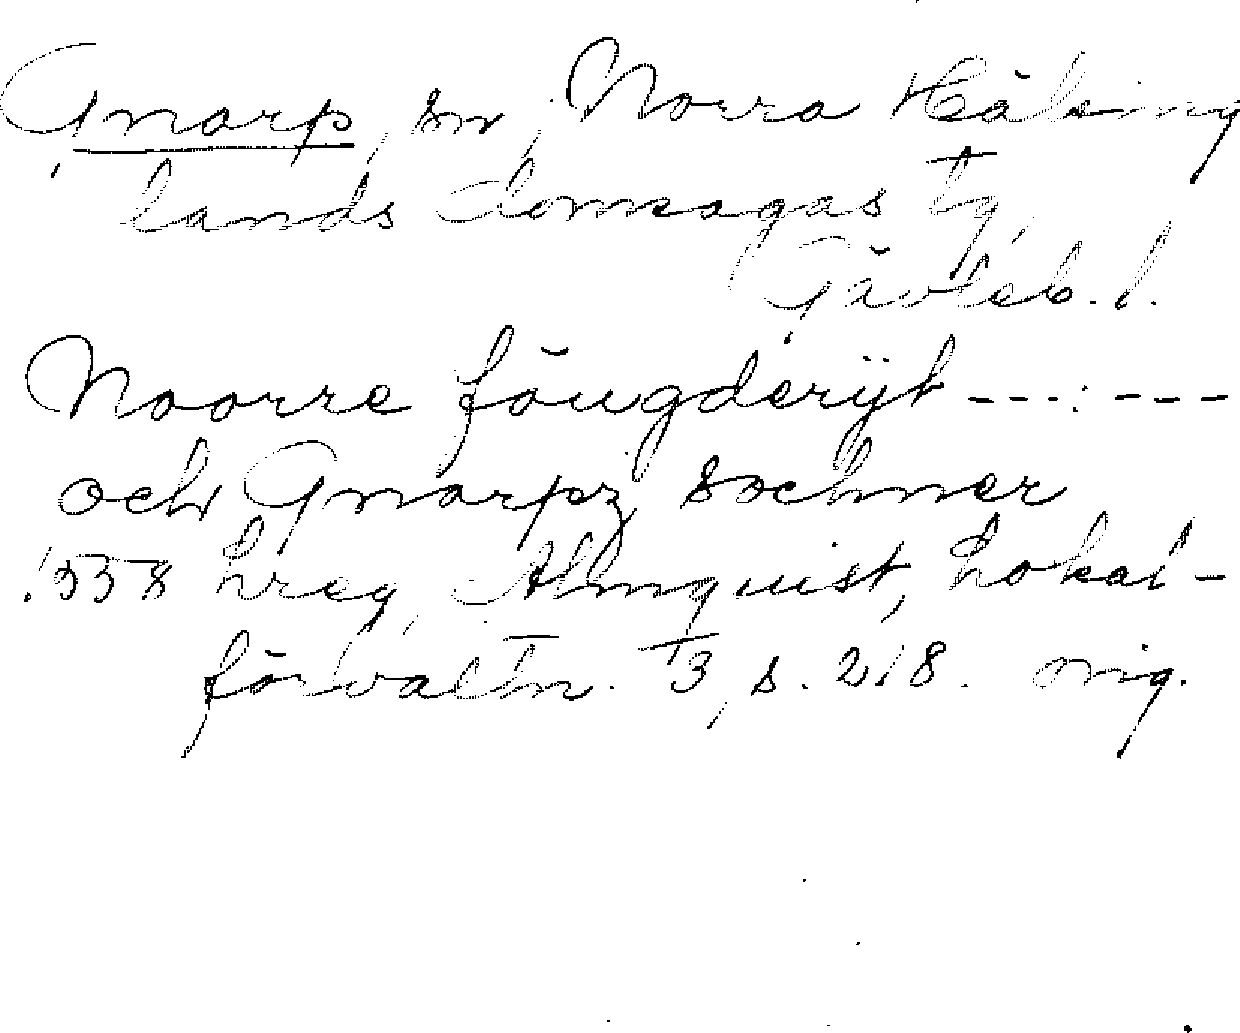 Gnarp, sn, Norra Hälsing
lands domsagas tg,
Gävleb. l.
Noorre föugderÿt ---:---
och Gnarpz sochner
1558 hreg, Almquist, Lokal-
förvaltn. 13, s. 218. orig.